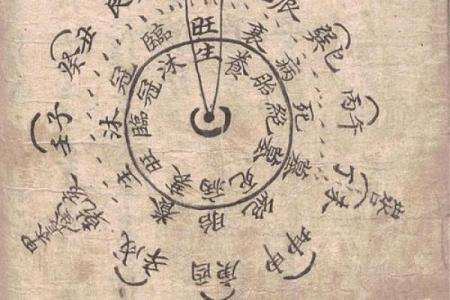 巽巳
丙午
丁未
坤申
庚酉
辛戌
壬子
癸丑
旺
衰
病
死
葬
絕
胎
養
生
沐
冠
臨
生
養
胎
絕
葬
死
病
衰
旺
臨
冠
沐